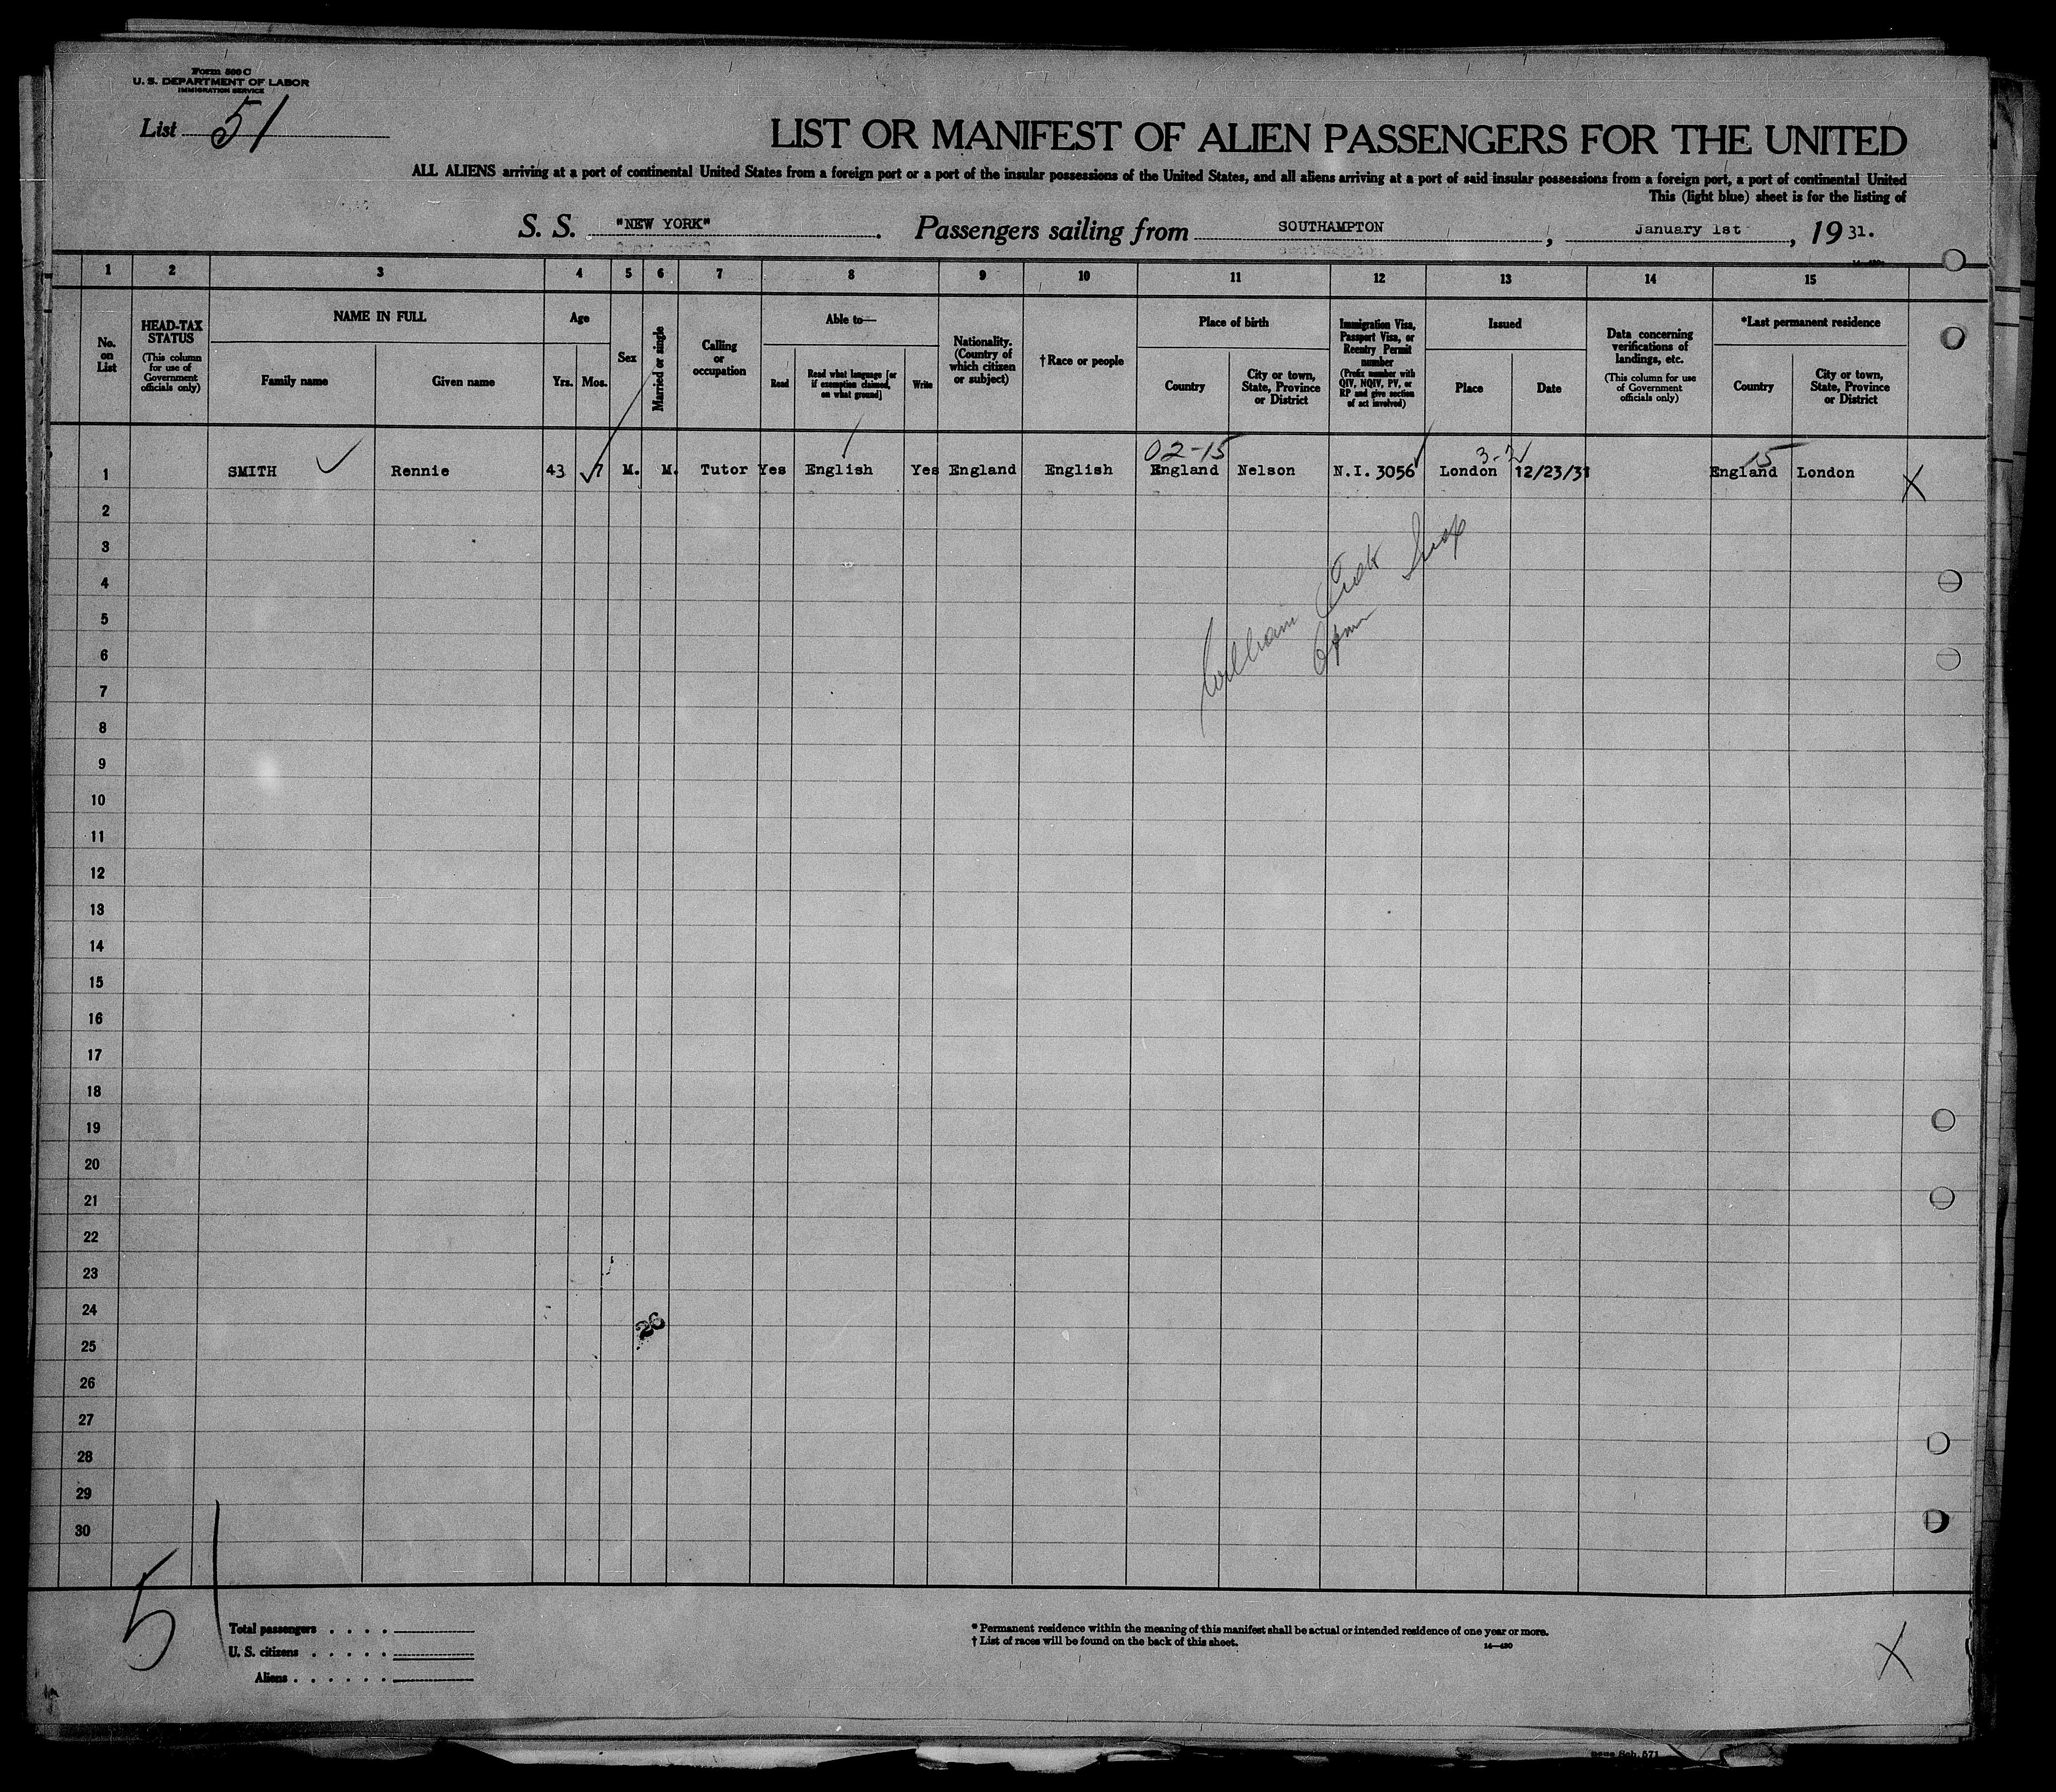 Form 500 C
U. S. DEPARTMENT OF LABOR
IMMIGRATION SERVICE
List 51
LIST OR MANIFEST OF ALIEN PASSENGERS FOR THE UNITED
ALL ALIENS arriving at a port of continental United States from a foreign port or a port of the insular possessions of the United States, and all aliens arriving at a port of said insular possessions from a foreign port, a port of continental United
This (light blue) sheet is for the listing of
S. S. "NEW YORK". Passengers sailing from SOUTHAMPTON, January 1st, 19 31.
1 2 3 4 5 6 7 8 9 10 11 12 13 14 15
No. on List
HEAD-TAX STATUS
(This column for use of Government officials only)
NAME IN FULL
Family name
Given name
Age
Yrs. Mos.
Sex
Married or single
Calling or occupation
Able to—
Read
Read what language [or if exemption claimed, on what ground]
Write
Nationality. (Country of which citizen or subject)
†Race or people
Place of birth
Country
City or town, State, Province or District
Immigration Visa, Passport Visa, or Reentry Permit number
(Prefix number with QIV, NQIV, PV, or RP and give section of act involved)
Issued
Place
Date
Data concerning verifications of landings, etc.
(This column for use of Government officials only)
*Last permanent residence
Country
City or town, State, Province or District
02-15 3-2 15
1 SMITH Rennie 43 7 M. M. Tutor Yes English Yes England English England Nelson N.I. 3056 London 12/23/31 England London X
2
3
4
5
6
7
8
9
10
11
12
13
14
15
16
17
18
19
20
21
22
23
24
25
26
27
28
29
30
William
26
51
Total passengers . . . .
U. S. citizens . . . . .
Aliens . . . . . .
* Permanent residence within the meaning of this manifest shall be actual or intended residence of one year or more.
† List of races will be found on the back of this sheet.
14—480
X